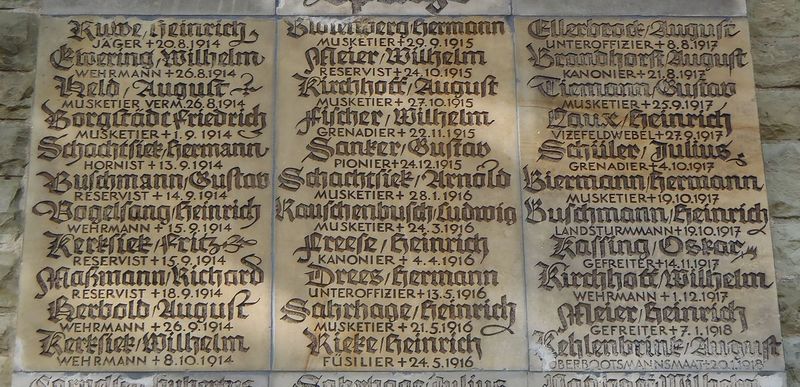 Ruwe/Heinrich
JÄGER + 20.8.1914
Ewering/Wilhelm
WEHRMANN + 26.8.1914
Held/August
MUSKETIER VERM. 26.8.1914
Borgstädt Friedrich
MUSKETIER + 1.9.1914
Schachtsiek/Hermann
HORNIST + 13.9.1914
Buschmann/Gustav
RESERVIST + 14.9.1914
Vogelsang/Heinrich
WEHRMANN + 15.9.1914
Kerksiek/Fritz
RESERVIST + 15.9.1914
Maßmann/Richard
RESERVIST + 18.9.1914
Herbold/August
WEHRMANN + 26.9.1914
Kerksiek/Wilhelm
WEHRMANN + 8.10.1914
Hermann
MUSKETIER + 29.9.1915
Meier/Wilhelm
RESERVIST + 24.10.1915
Kirchhoff/August
MUSKETIER + 27.10.1915
Fischer/Wilhelm
GRENADIER + 22.11.1915
Sanker/Gustav
PIONIER + 24.12.1915
Schachtsiek/Arnold
MUSKETIER + 28.1.1916
Rauschenbusch/Ludwig
MUSKETIER + 24.3.1916
Freese/Heinrich
KANONIER + 4.4.1916
Drees/Hermann
UNTEROFFIZIER + 13.5.1916
Sahrhage/Heinrich
MUSKETIER + 21.5.1916
Rieke/Heinrich
FÜSILIER + 24.5.1916
Sahrhage/Julius
Ellerbrock/August
UNTEROFFIZIER + 8.8.1917
Brandhorst August
KANONIER + 21.8.1917
Tiemann/Gustav
MUSKETIER + 25.9.1917
Laux/Heinrich
VIZEFELDWEBEL + 27.9.1917
Schüler/Julius
GRENADIER + 4.10.1917
Biermann/Hermann
MUSKETIER + 19.10.1917
Buschmann/Heinrich
LANDSTURMMANN + 19.10.1917
Kassing/Oskar
GEFREITER + 14.11.1917
Kirchhoff/Wilhelm
WEHRMANN + 1.12.1917
Meier/Heinrich
GEFREITER + 7.1.1918
Kehlenbrink/August
OBERBOOTSMANNSMAAT + 20.1.1918